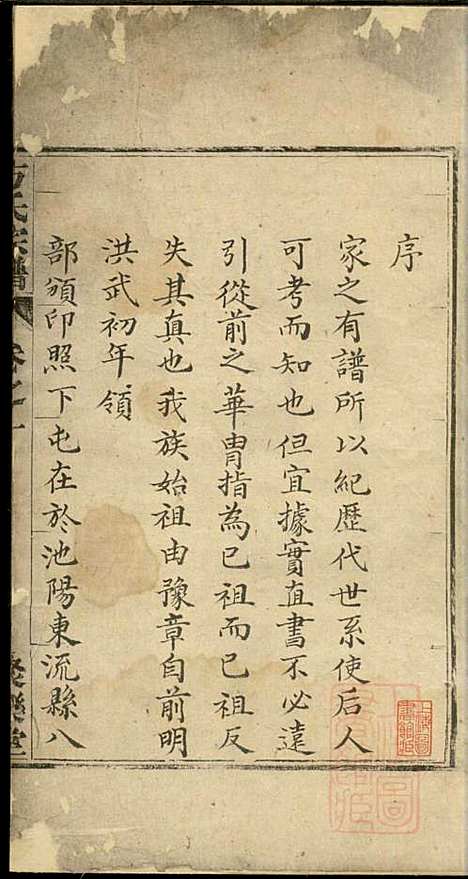 序
家之有譜所以紀歷代世系使后人
可考而知也但宜據實直書不必遠
引從前之華胄指為已祖而已祖反
失其真也我族始祖由豫章自前明
洪武初年領
部頒印照下屯在於池陽東流縣八
氏宗譜
卷之一
聚樂堂